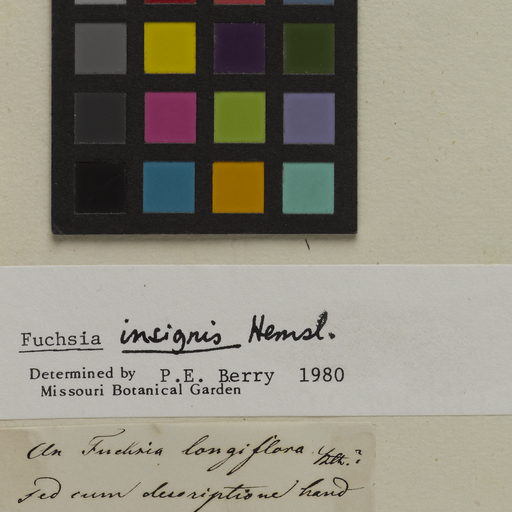 Fuchsia insignis Hemsl.
Determined by P.E. Berry 1980
Missouri Botanical Garden
An Fuchsia longiflora Bth.?
Sed cum descriptione haud